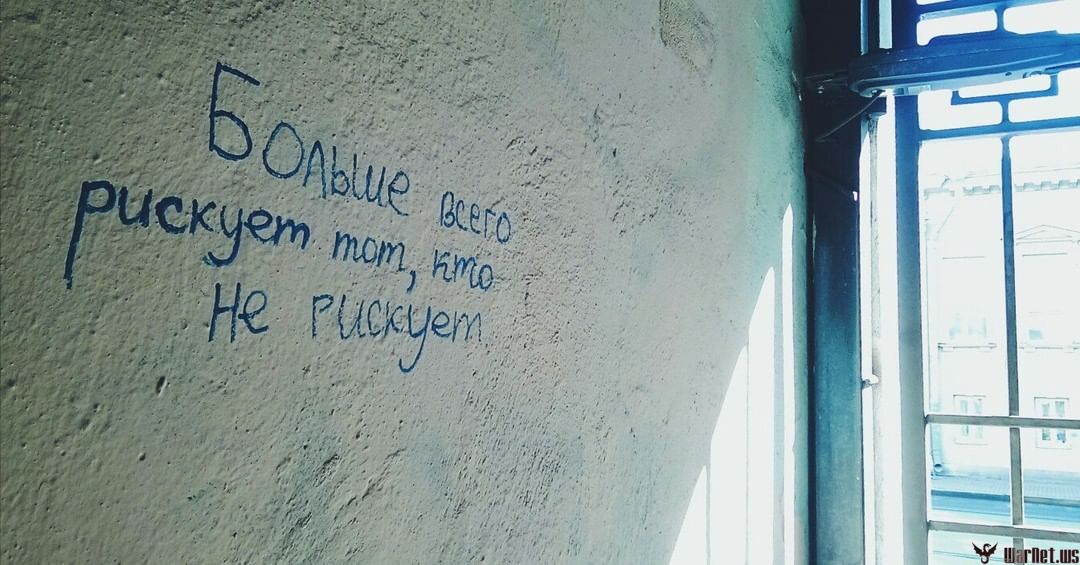 Больше всего
рискует тот, кто
не рискует
WarNet.ws